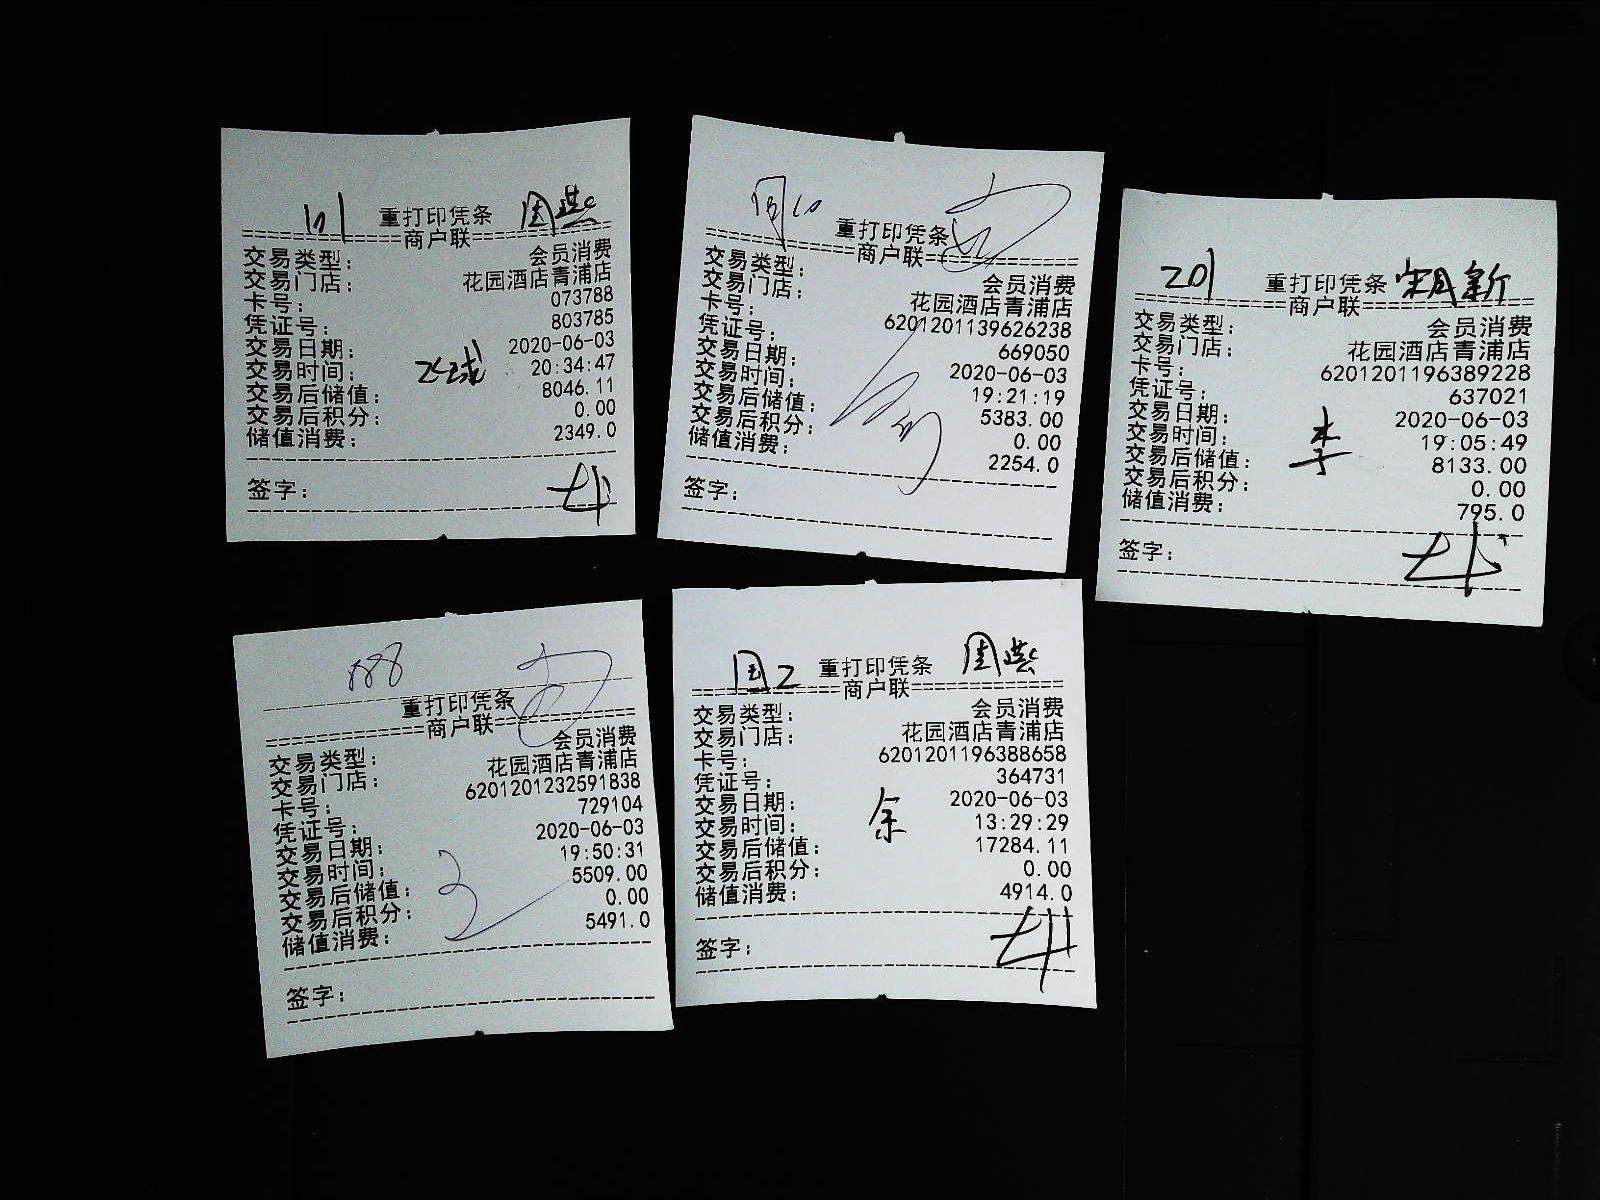 101 重打印凭条 周燕
商户联
交易类型: 会员消费
交易门店: 花园酒店青浦店
卡号: 073788
凭证号: 803785
交易日期: 2020-06-03
交易时间: 20:34:47
交易后储值: 8046.11
交易后积分: 0.00
储值消费: 2349.0
签字:
重打印凭条
商户联
交易类型: 会员消费
交易门店: 花园酒店青浦店
卡号: 6201201139626238
凭证号: 669050
交易日期: 2020-06-03
交易时间: 19:21:19
交易后储值: 5383.00
交易后积分: 0.00
储值消费: 2254.0
签字:
201 重打印凭条
商户联
交易类型: 会员消费
交易门店: 花园酒店青浦店
卡号: 6201201196389228
凭证号: 637021
交易日期: 2020-06-03
交易时间: 19:05:49
李
交易后储值: 8133.00
交易后积分: 0.00
储值消费: 795.0
签字:
888
重打印凭条
商户联
交易类型: 会员消费
交易门店: 花园酒店青浦店
卡号: 6201201232591838
凭证号: 729104
交易日期: 2020-06-03
交易时间: 19:50:31
交易后储值: 5509.00
交易后积分: 0.00
储值消费: 5491.0
签字:
国2 重打印凭条 周燕
商户联
交易类型: 会员消费
交易门店: 花园酒店青浦店
卡号: 6201201196388658
凭证号: 364731
交易日期: 2020-06-03
余
交易时间: 13:29:29
交易后储值: 17284.11
交易后积分: 0.00
储值消费: 4914.0
签字: